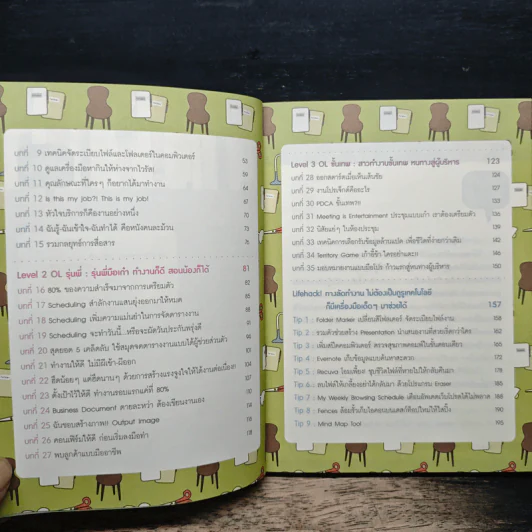 บทที่ 9 เทคนิคจัดระเบียบไฟล์และโฟลเดอร์ในคอมพิวเตอร์ 53
บทที่ 10 ดูแลเครื่องมือหากินให้ห่างจากไวรัส!
บทที่ 11 คุณลักษณะที่ใครๆ ก็อยากได้มาทำงาน 64
บทที่ 12 Is this my job?! This is my job! 67
บทที่ 13 หัวใจบริการก็ต้องงานอย่างหนึ่ง 70
บทที่ 14 ฉันรู้-ฉันเข้าใจ-ฉันทำได้ คือหนังคนละม้วน 73
บทที่ 15 รวมกลยุทธ์การสื่อสาร 76
Level 2 OL รุ่นพี่ : รุ่นพี่มือเก๋า ทำงานก็ดี สอนน้องก็ได้ 81
บทที่ 16 80% ของความสำเร็จมาจากการเตรียมตัว 82
บทที่ 17 Scheduling สำนักงานแสนยุ่งออกมาให้หมด
บทที่ 18 Scheduling เพิ่มความแม่นยำในการจัดตาราง
บทที่ 19 Scheduling จะทำวันนี้...หรือจะผัดวันประกันพรุ่งดี
บทที่ 20 สุดยอด 5 เคล็ดลับ ใช้สมุดจดตารางงานแบบได้ผู้ช่วยส่วนตัว
บทที่ 21 ทำงานให้ดี ไม่มีผีเข้า-ผีออก
บทที่ 22 ฮึดน้อยๆ แต่ฮึดนานๆ ด้วยการสร้างแรงจูงใจให้ได้งานต่อเนื่อง!
บทที่ 23 ตั้งเป้าไว้ให้ดี ทำงานรอบแรกแค่ที่ 80%
บทที่ 24 Business Document ตายละหว่า ต้องเขียนงานเอง
บทที่ 25 ฉันชอบสร้างภาพ!! Output Image
บทที่ 26 คอนเฟิร์มให้ดี ก่อนเริ่มลงมือทำ
บทที่ 27 พบลูกค้าแบบมืออาชีพ
Level 3 OL ขั้นเทพ : สาวทำงานขั้นเทพ หนทางสู่ผู้บริหาร 123
บทที่ 28 ออกสตาร์ตเมื่อเห็นเส้นชัย
บทที่ 29 งานโปรเจ็กต์คืออะไร 127
บทที่ 30 PDCA ขั้นเทพ!!! 130
บทที่ 31 Meeting is Entertainment ประชุมแบบเก๋า เราต้องเตรียมตัว 136
บทที่ 32 นิสัยแย่ๆ ในห้องประชุม 139
บทที่ 33 เทคนิคการเลือกรับข้อมูลด้านแปด เพื่อชีวิตที่ง่ายกว่าเดิม 142
บทที่ 34 Territory Game เก้าอี้ข้า ใครอย่าแตะ!! 146
บทที่ 35 มอบหมายงานแบบมือโปร ก้าวแรกสู่หนทางผู้บริหาร 150
Lifehack! ทางลัดทำงาน ไม่ต้องเป็นกูรูเทคโนโลยี
ก็มีเครื่องมือเด็ดๆ มาช่วยได้ 157
Tip 1 : Folder Marker เปลี่ยนสีโฟลเดอร์ จัดระเบียบไฟล์งาน 158
Tip 2 : รวมตัวช่วยสร้าง Presentation นำเสนองานที่สวยเริ่ดกว่าใคร! 162
Tip 3 : เพิ่มสปีดคอมพิวเตอร์ ตรวจสุขภาพคอมพ์ในขั้นตอนเดียว
Tip 4 : Evernote เก็บข้อมูลแบบค้นหาสะดวก
Tip 5 : Recuva โอมเพี้ยง! ชุบชีวิตไฟล์ที่หายไปให้กลับคืนมา
Tip 6 : ลบไฟล์ให้เกลี้ยงอย่าได้กลับมา ด้วยโปรแกรม Eraser 186
Tip 7 : My Weekly Browsing Schedule เตือนอัพเดตเว็บโปรดได้ไม่พลาด 188
Tip 8 : Fences ล้อมรั้วเก็บไอคอนบนเดสก์ท็อปใหม่ให้ใสปิ๊ง 190
Tip 9 : Mind Map Tool 195